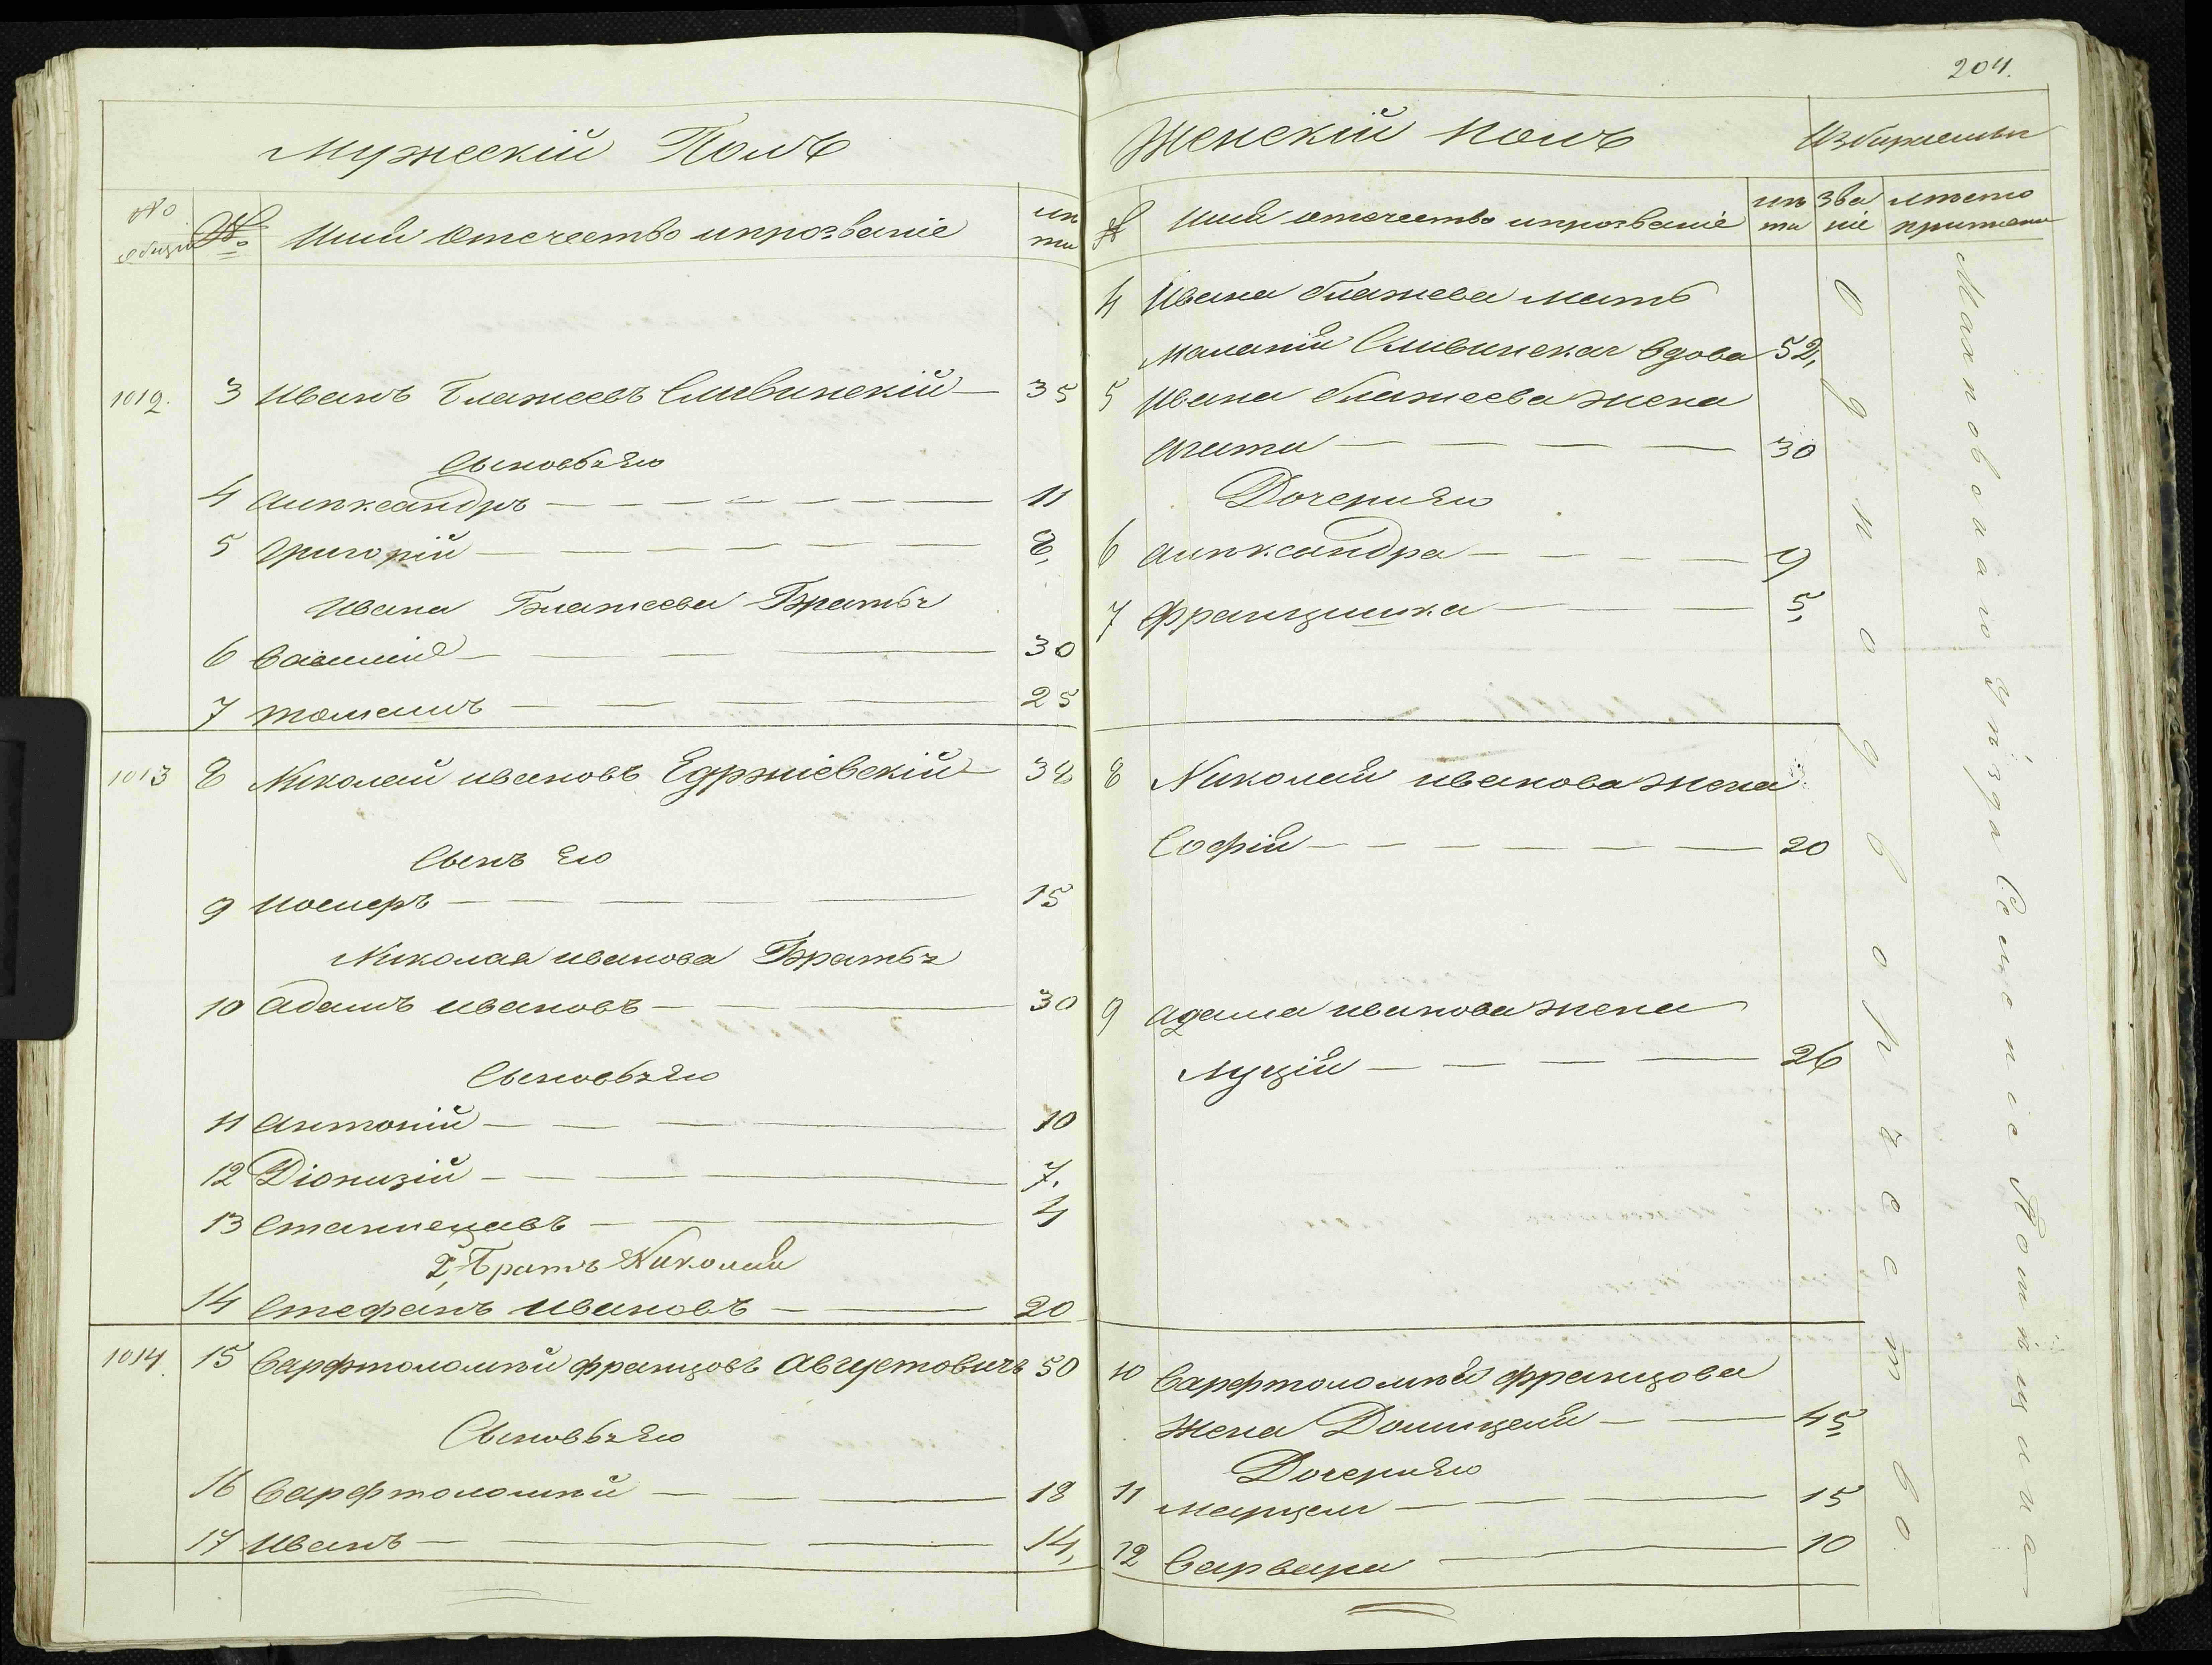 204.
Мужескій Полъ
№ общій
№
Имя Отечество и прозваніе
лѣта
1012. 3 Иванъ Блажеевъ Сливинскій — 35
Сыновья Его
4 Александръ — 11
5 Григорій — 8,
Ивана Блажеева Братья
6 Василій — 30
7 Томашъ — 25
1013 8 Николай Ивановъ Едржіевскій — 38
Сынъ Его
9 — 15
Николая Иванова Братья
10 Адамъ Ивановъ — 30
Сыновья Его
11 Антоній — 10
12 Діонизій — 7.
13 Станиславъ — 4
2, Братъ Николая
14 Стефанъ Ивановъ — 20
1014. 15 Варфтоломѣй Францовъ Августовичъ 50
Сыновья Его
16 Варфтоломѣй — 18
17 Иванъ — 14,
Женскій Полъ
№ Имя отечество и прозваніе
лѣта
званіе
мѣсто
4 Ивана Блажеева Мать
Маланія Сливинская вдова 52,
5 Ивана Блажеева жена
Агата — 30
Дочери Его
6 Александра — 9
7 Францишка — 5,
8 Николая Иванова жена
Софія — 20
9 Адама Иванова жена
Луція — 26
10 Варфтоломѣя Францова
Жена Доминцеля — 45
Дочери Его
11 Марцеля — 15
12 Варвара — 10
Однодворчество
Махновскаго Уѣзда Селеніе